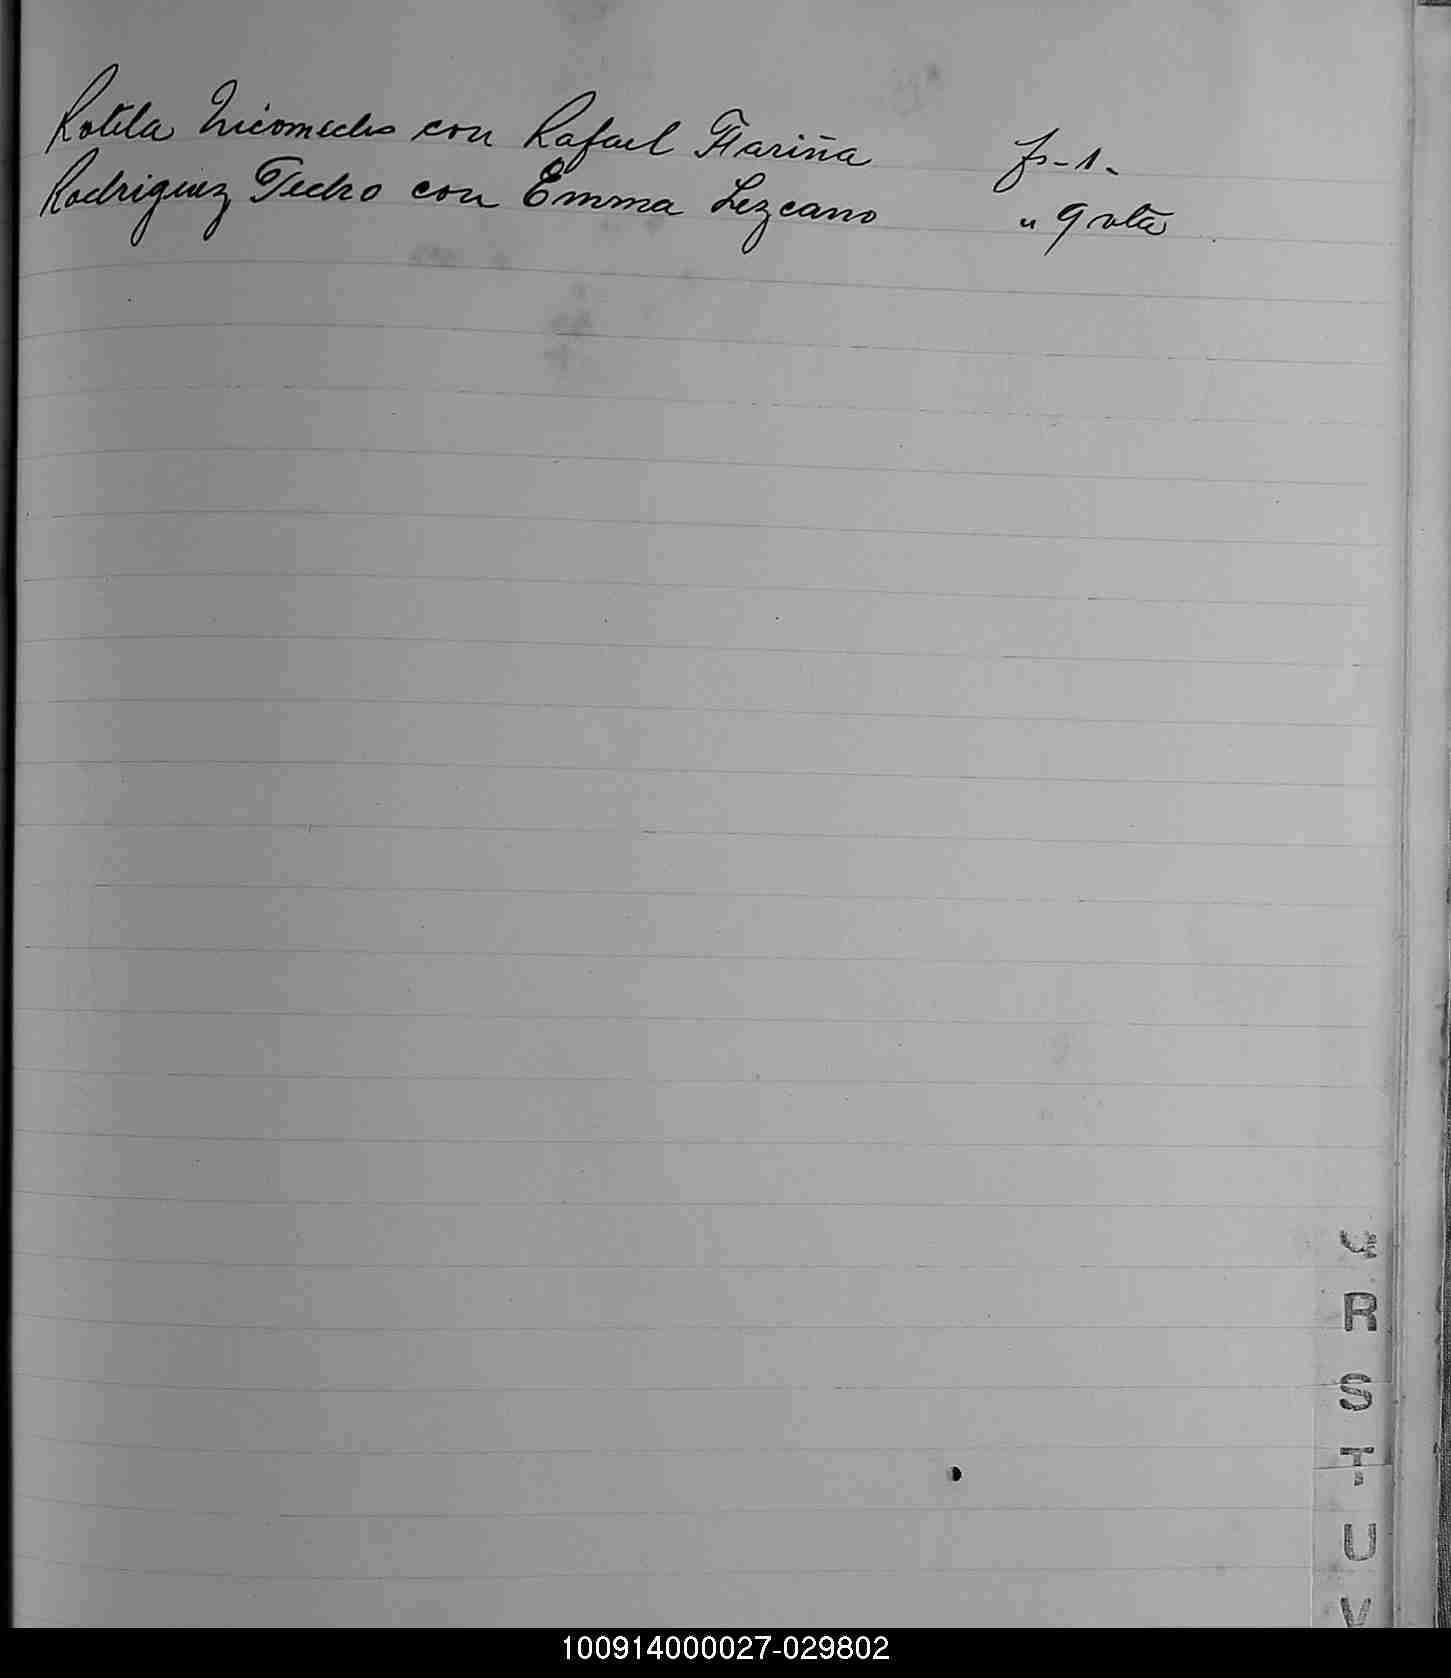 Rotela Nicomedes con Rafael Fariña fs-1-
Rodriguez Pedro con Emma Lezcano " 9 vta
Q
R
S
T
U
V
100914000027-029802